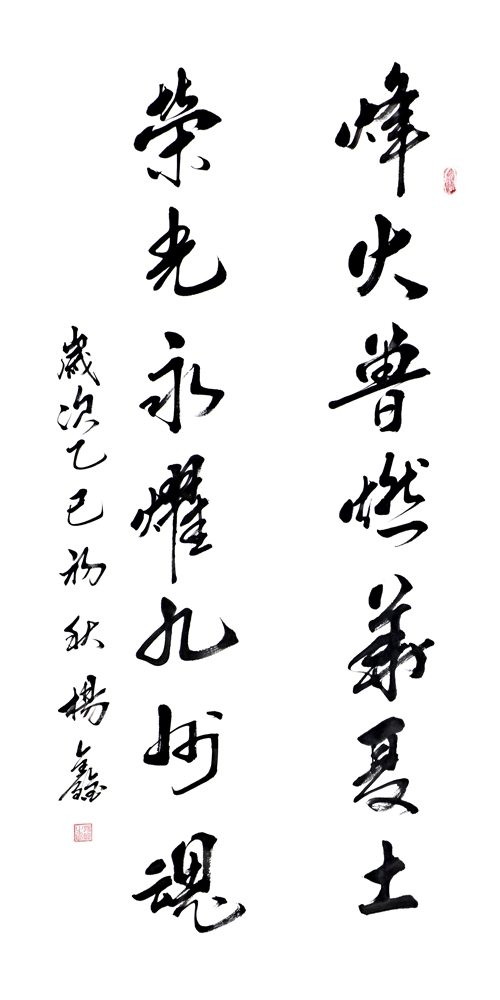 烽火曾燃華夏土
榮光永耀九州魂
歲次乙巳初秋楊鑫